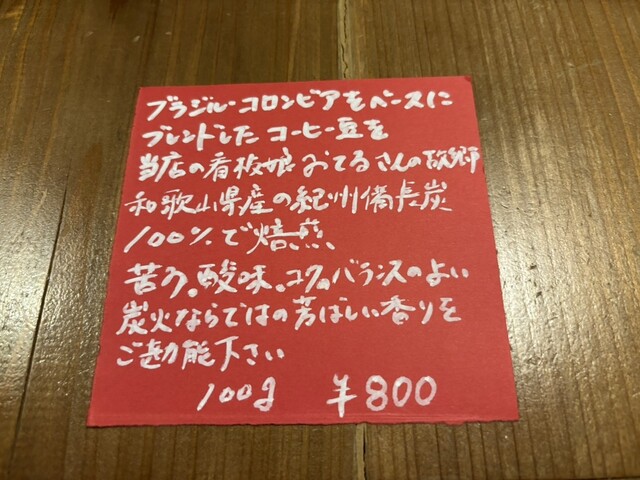 ブラジル・コロンビアをベースに
ブレンドしたコーヒー豆を
当店の看板娘おてるさんの故郷
和歌山県産の紀州備長炭
100%で焙煎
苦み、酸味、コクのバランスのよい
炭火ならではの芳ばしい香りを
ご勘能下さい
100g ¥800